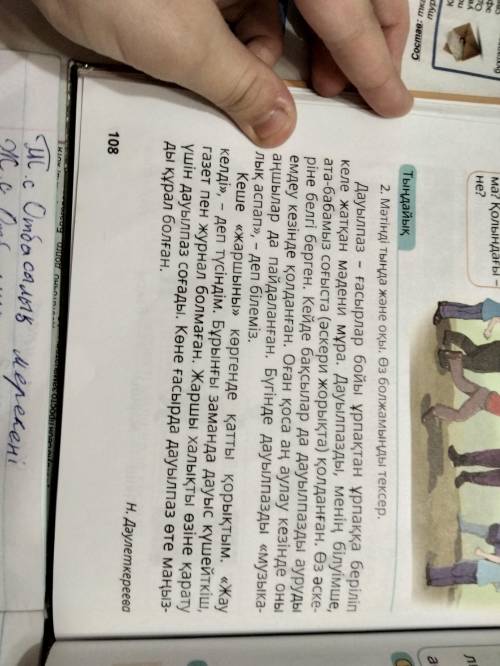 Тыңдайық
2. Мәтінді тыңда және оқы. Өз болжамыңды тексер.
Дауылпаз – ғасырлар бойы ұрпақтан ұрпаққа беріліп
келе жатқан мәдени мұра. Дауылпазды, менің білуімше,
ата-бабамыз соғыста (әскери жорықта) қолданған. Өз әске-
ріне белгі берген. Кейде бақсылар да дауылпазды ауруды
емдеу кезінде қолданған. Оған қоса аң аулау кезінде оны
аңшылар да пайдаланған. Бүгінде дауылпазды «музыка-
лық аспап», – деп білеміз.
Кеше «жаршыны» көргенде қатты қорықтым. «Жау
келді», – деп түсіндім. Бұрынғы заманда дауыс күшейткіш,
газет пен журнал болмаған. Жаршы халықты өзіне қарату
үшін дауылпаз соғады. Көне ғасырда дауылпаз өте маңыз-
ды құрал болған.
Н. Дәулеткереева
108
Қолыңдағы –
не?
Т.с Отбасалық мерекені